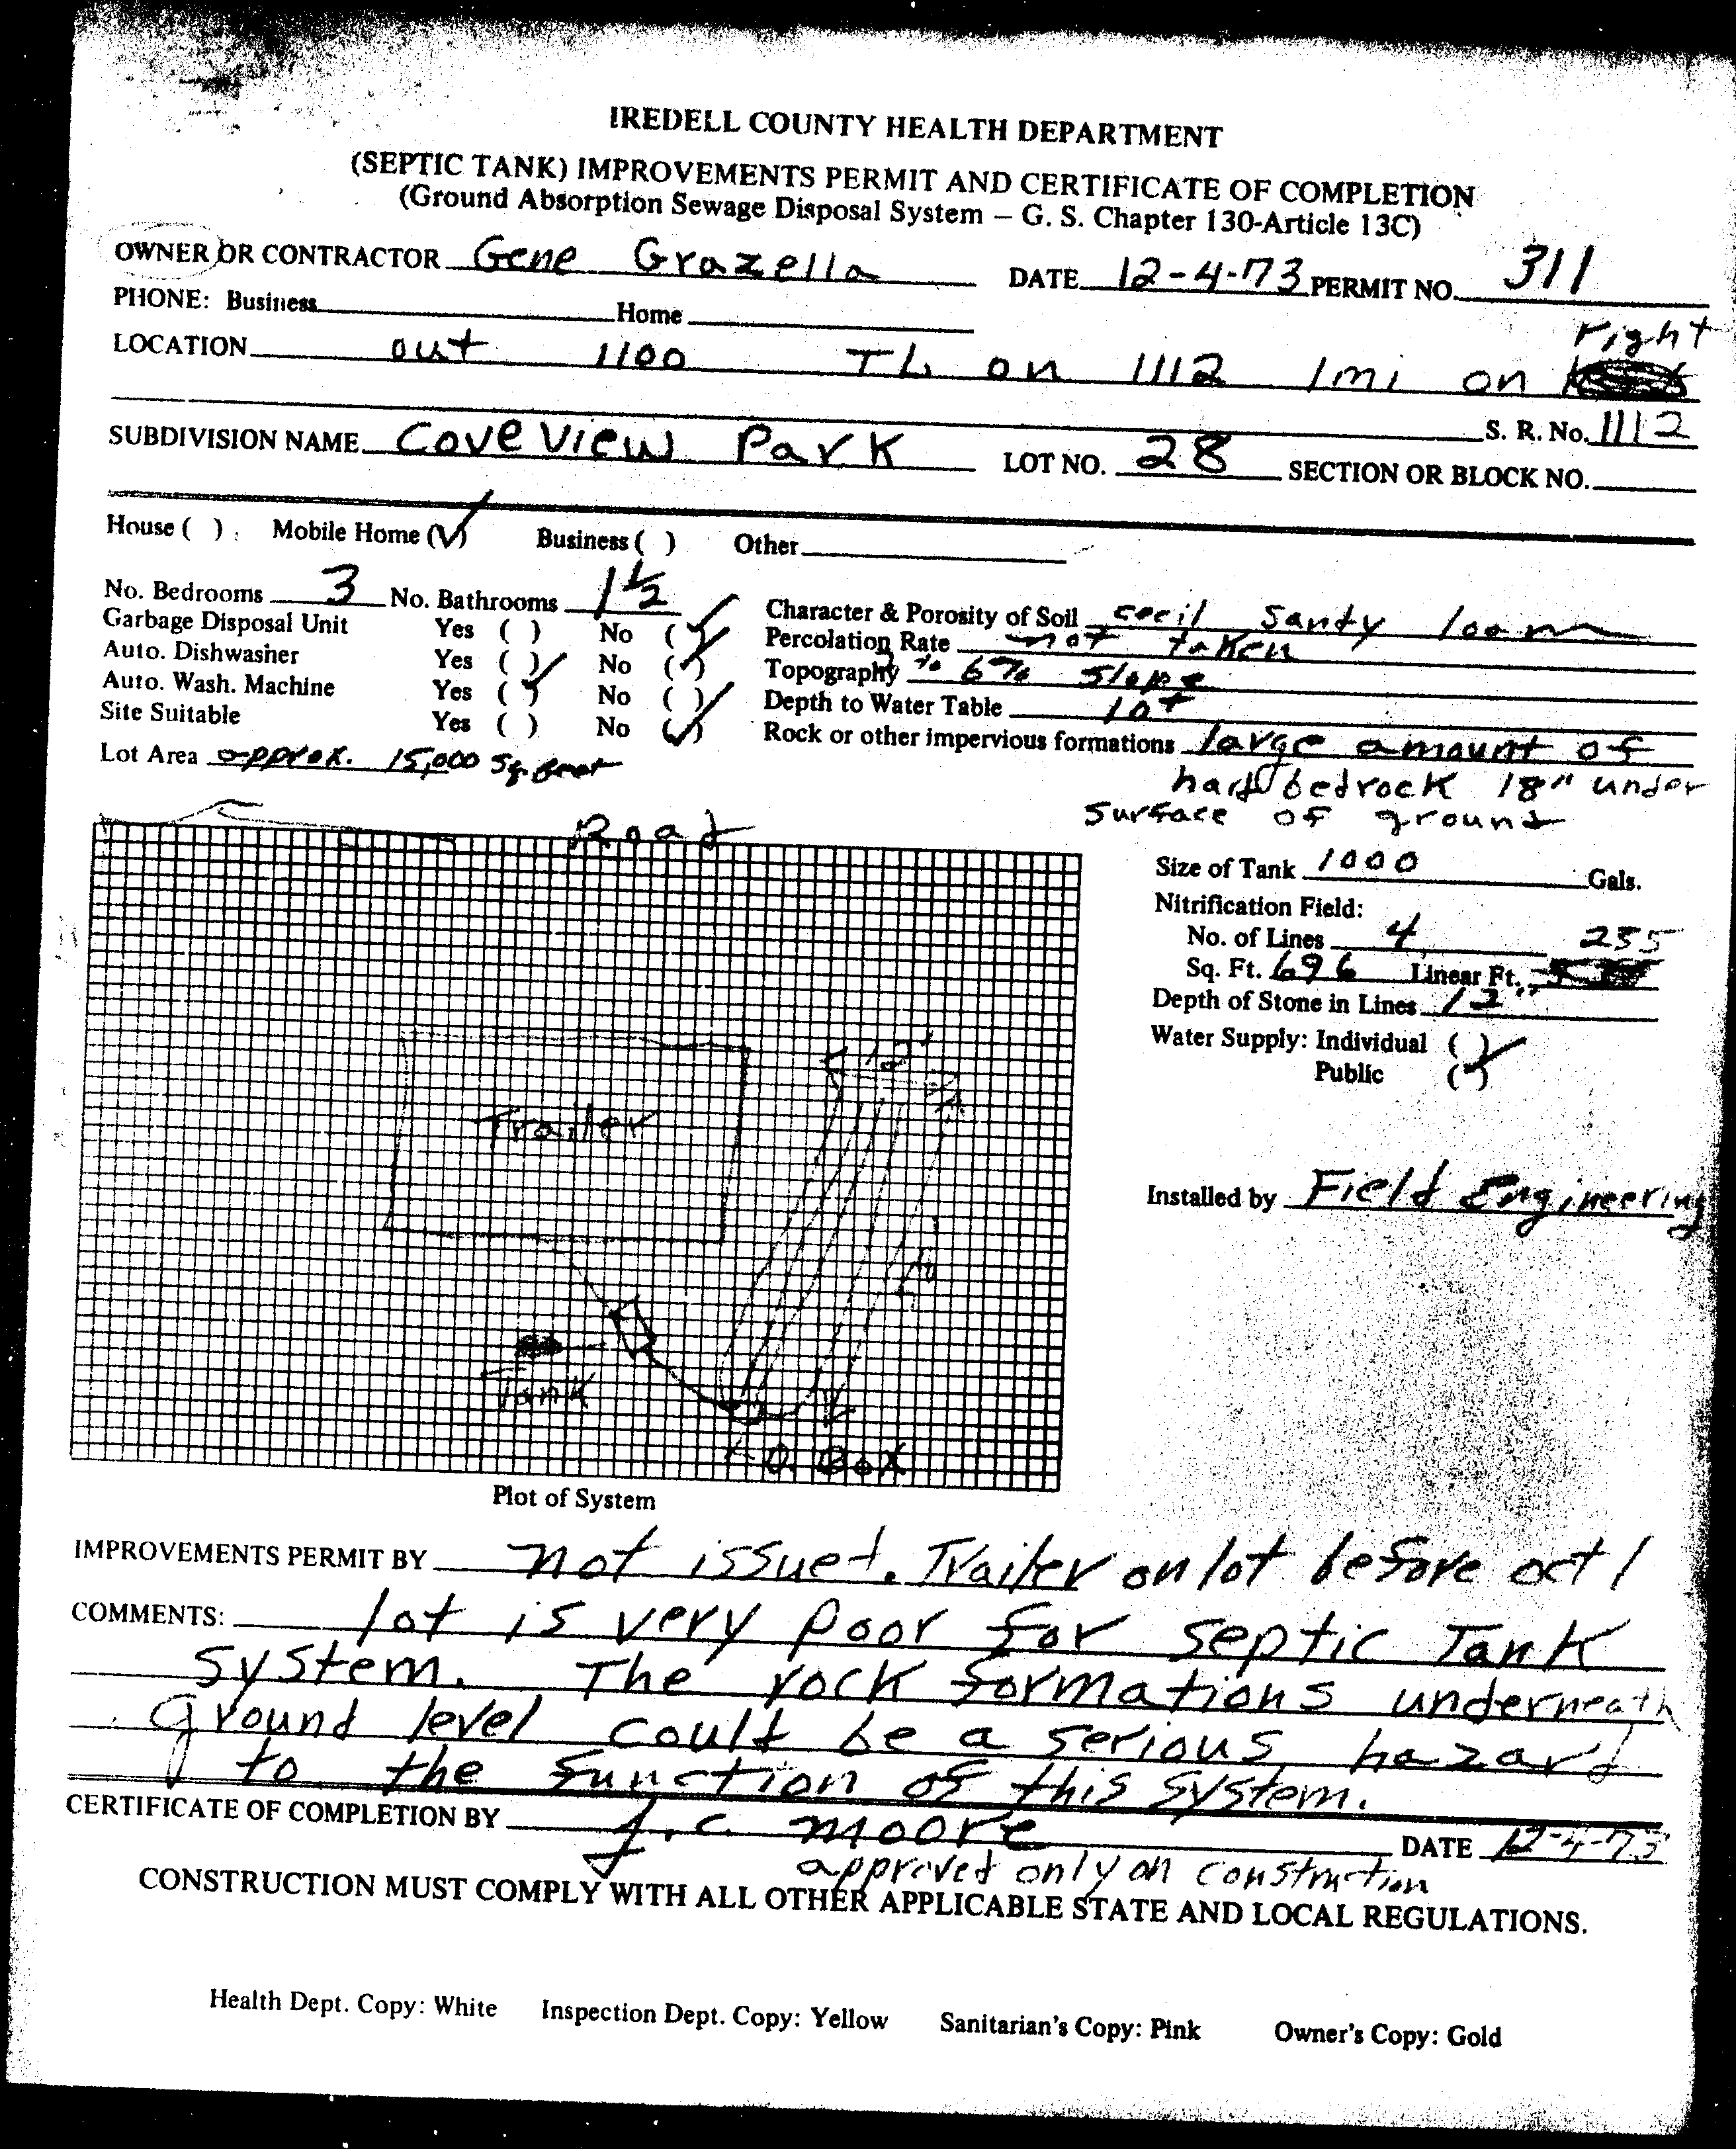 IREDELL COUNTY HEALTH DEPARTMENT
(SEPTIC TANK) IMPROVEMENTS PERMIT AND CERTIFICATE OF COMPLETION
(Ground Absorption Sewage Disposal System – G. S. Chapter 130-Article 13C)
OWNER OR CONTRACTOR Gene Grazella DATE 12-4-73 PERMIT NO. 311
PHONE: Business Home
right
LOCATION out 1100 TL on 1112 1mi on
S. R. No. 1112
SUBDIVISION NAME Cove View Park LOT NO. 28 SECTION OR BLOCK NO.
House ( ) Mobile Home (✓) Business ( ) Other
No. Bedrooms 3 No. Bathrooms 1 1/2 Character & Porosity of Soil cecil Sandy loam
Garbage Disposal Unit Yes ( ) No (✓) Percolation Rate not taken
Auto. Dishwasher Yes ( ) No (✓) Topography to 6% slope
Auto. Wash. Machine Yes (✓) No ( ) Depth to Water Table 10+
Site Suitable Yes ( ) No (✓) Rock or other impervious formations large amount of
Lot Area approx. 15,000 sq. feet
hard bedrock 18" under
surface of ground
Road
Size of Tank 1000 Gals.
Nitrification Field:
No. of Lines 4 235
Sq. Ft. 696 Linear Ft.
Depth of Stone in Lines 12"
Water Supply: Individual ( )
Public (✓)
12'
Trailer
Installed by Field Engineering
Tank
D. Box
Plot of System
IMPROVEMENTS PERMIT BY not issued. Trailer on lot before oct 1
COMMENTS: lot is very poor for septic Tank
system. The rock formations underneath
ground level could be a serious hazard
to the function of this system.
CERTIFICATE OF COMPLETION BY J.C. Moore DATE 12-4-73
approved only on construction
CONSTRUCTION MUST COMPLY WITH ALL OTHER APPLICABLE STATE AND LOCAL REGULATIONS.
Health Dept. Copy: White Inspection Dept. Copy: Yellow Sanitarian's Copy: Pink Owner's Copy: Gold